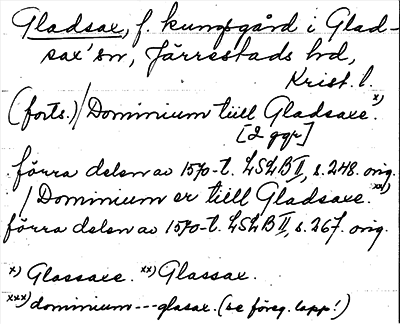 Gladsax, f. kungsgård i Glad-
sax' sn, Järrestads hd,
Krist. l.
(forts.) / Dominium tiill Gladsaxe. x)
[2 ggr]
förra delen av 1570-t. LSLB II, s. 248. orig.
/ Dominium er tiill Gladsaxe. xx)
förra delen av 1570-t. LSLB II, s. 267. orig.
x) Glassaxe. xx) Glassax.
xxx) dominium --- glasax. (se föreg. lapp!)